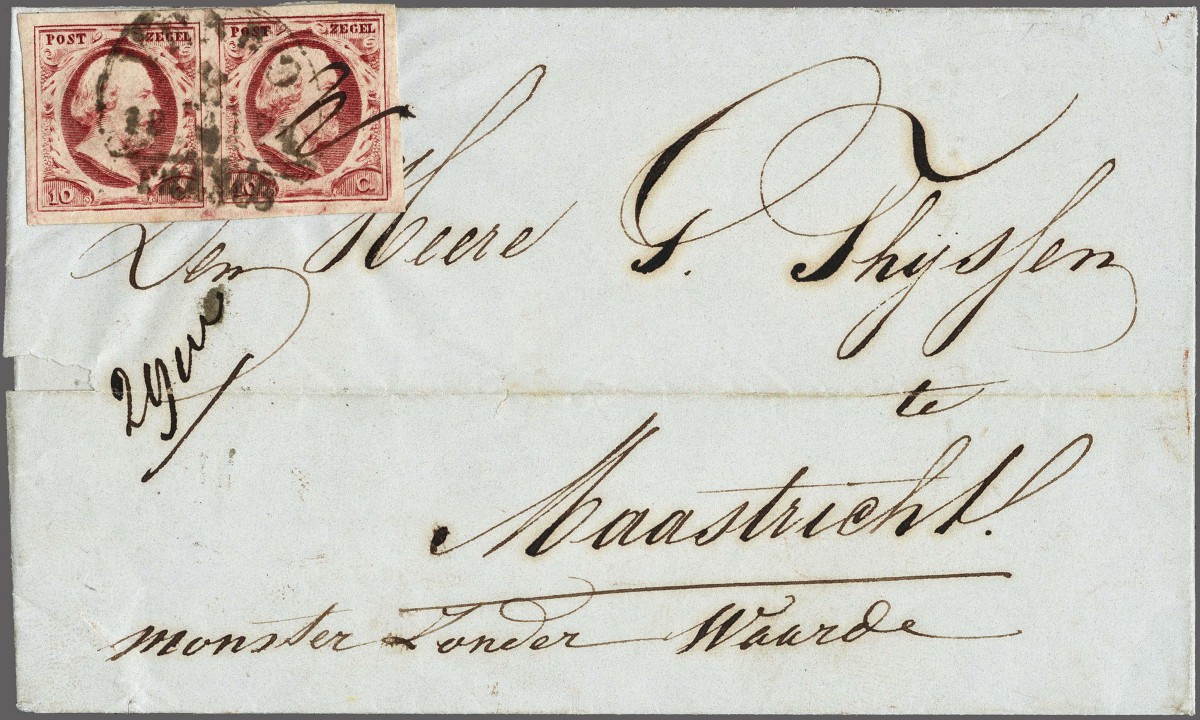 POST ZEGEL POST ZEGEL
10 C.
Den Heere G. Thyssen
te
Maastricht.
monster Zonder Waarde